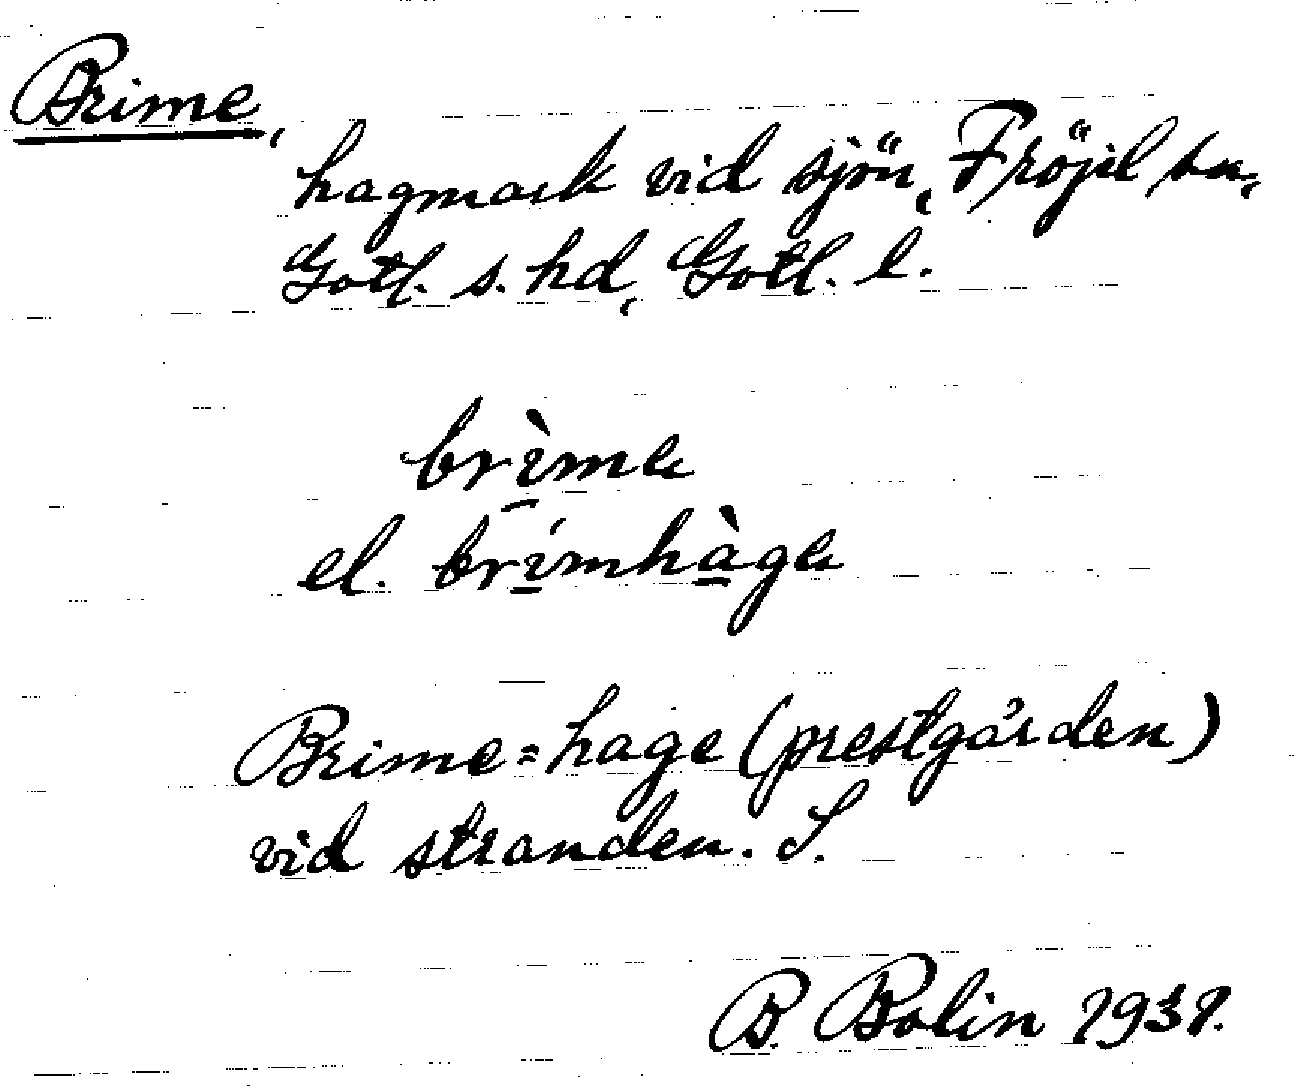 Brime,
hagmark vid sjön, Fröjel sn,
Gotl. s. hd, Gotl. l.
brìme
el. brímhàge
Brime=hage (prestgården)
vid stranden. S.
B. Bolin 1931.